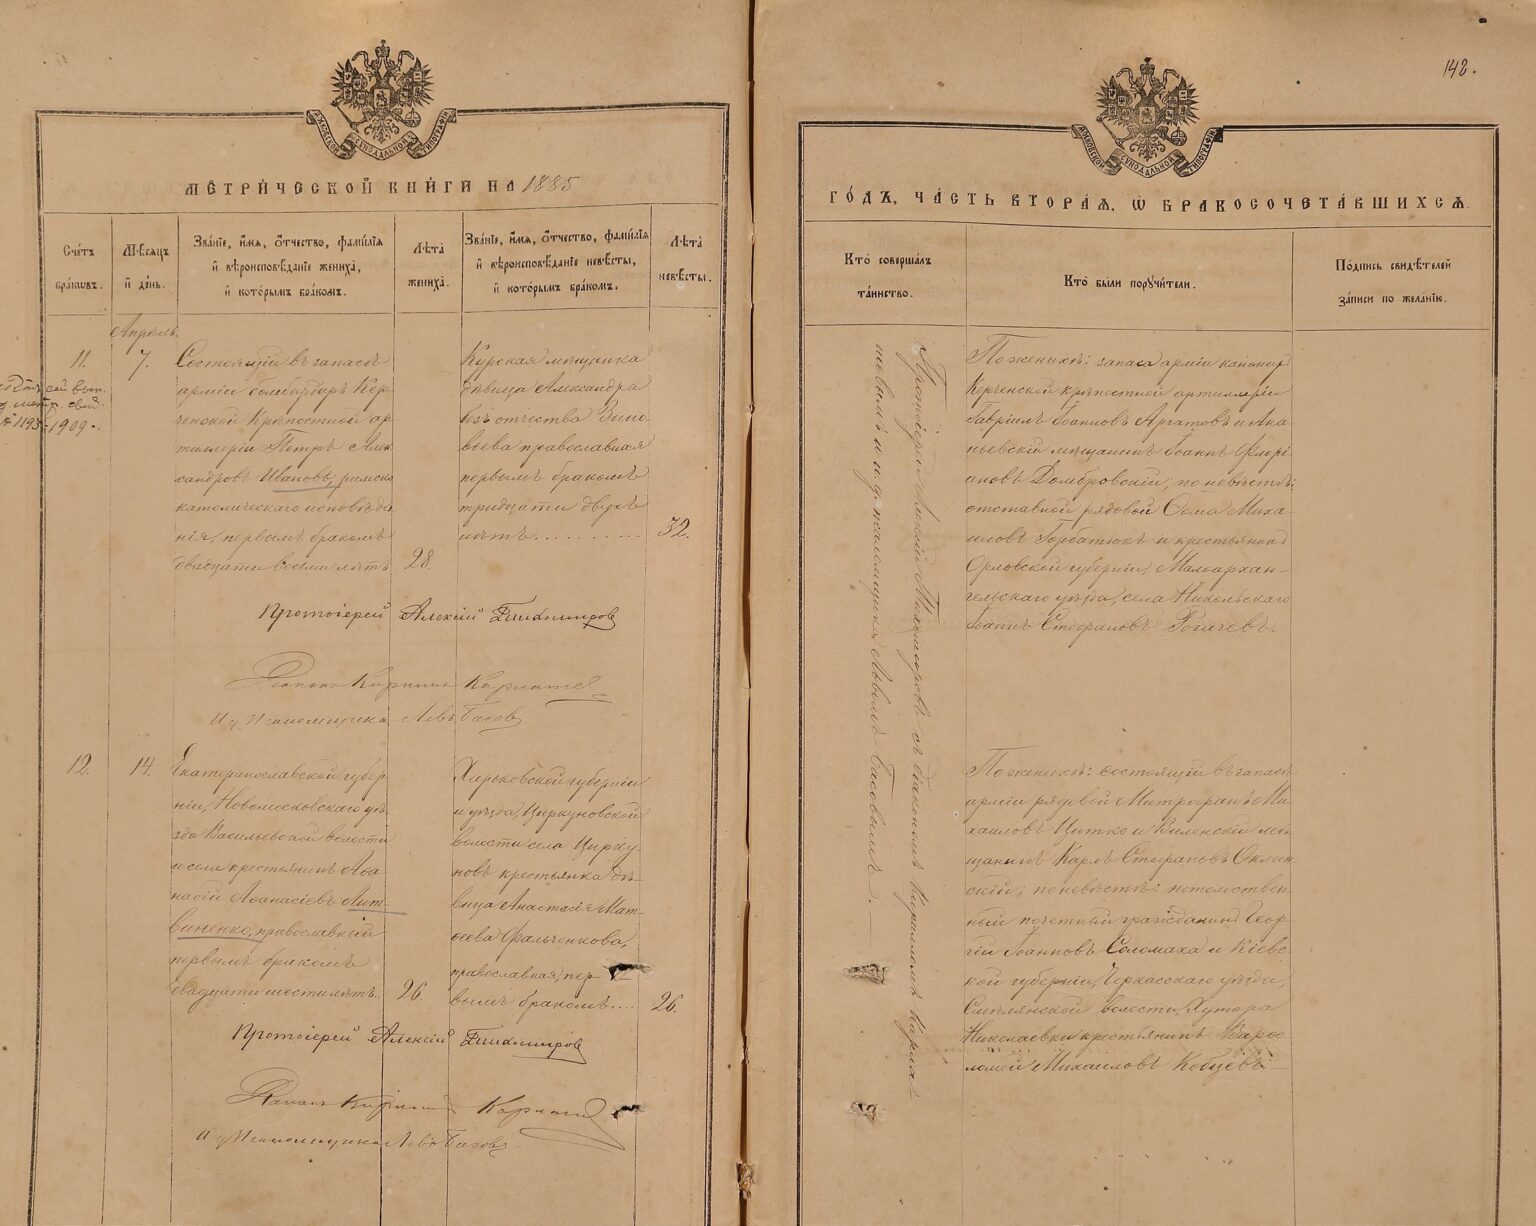 148.
МОСКОВСКОЙ СѴНОДАЛЬНОЙ ТИПОГРАФІИ
МЕТРИЧЕСКОЙ КНИГИ НА 1885
Счетъ браковъ.
Мѣсяцъ и день.
Званіе, имя, отчество, фамилія и вѣроисповѣданіе жениха, и которымъ бракомъ.
Лѣта жениха.
Званіе, имя, отчество, фамилія и вѣроисповѣданіе невѣсты, и которымъ бракомъ.
Лѣта невѣсты.
Апрѣль.
11.
7.
сей вып.
метр. свид.
№ 1193 - 1909.
Состоящій въ запасѣ
арміи бомбардиръ Кер-
ченской Крѣпостной ар-
тиллеріи Петръ Алек-
сандровъ Ивановъ, римско
католическаго исповѣда
нія, первымъ бракомъ
двадцати восьми лѣтъ
28.
Курская мѣщанка
дѣвица Александра
безъ отчества Зино-
вьева православная
первымъ бракомъ
тридцати двухъ
лѣтъ..........
32.
Протоіерей Алексій Тихомировъ
Діаконъ Кириллъ Карпа
И д Псаломщика Левъ Басовъ
12.
14.
Екатеринославской губер-
ніи, Новомосковскаго уѣ-
зда Васильевской волости
и села крестьянинъ Аѳа-
насій Аѳанасіевъ Лит-
виненко, православный
первымъ бракомъ
двадцати шести лѣтъ.
26.
Харьковской губерніи
и уѣзда, Циркуновской
волости села Цирку-
новъ крестьянка дѣ-
вица Анастасія Мат-
ѳеева Фальченкова,
православная, пер-
вымъ бракомъ....
26.
Протоіерей Алексій Тихомировъ
Діаконъ Кириллъ Карпа
И д Псаломщика Левъ Басовъ
МОСКОВСКОЙ СѴНОДАЛЬНОЙ ТИПОГРАФІИ
ГОДЪ, ЧАСТЬ ВТОРАЯ, Ѡ БРАКОСОЧЕТАВШИХСЯ
Кто совершалъ таинство.
Кто были поручители.
Подпись свидѣтелей записи по желанію.
Протоіерей Алексій Тихомировъ съ діакономъ Кирилломъ Карпа
и и. д. псаломщика Львомъ Басовымъ.
По женихѣ: запаса арміи канониръ
Керченской крѣпостной артиллеріи
Гавріилъ Іоанновъ Аргатовъ и Ана-
ньевскій мѣщанинъ Іоаннъ Флорі-
ановъ Домбровскій; по невѣстѣ:
отставной рядовой Ѳома Миха-
иловъ Горбатюкъ и крестьянинъ
Орловской губерніи, Малоархан-
гельскаго уѣзда, села Никольскаго
Іоаннъ Стефановъ Рогачевъ.
По женихѣ: состоящій въ запасѣ
арміи рядовой Митрофанъ Ми-
хаиловъ Цитко и Виленскій мѣ-
щанинъ Карлъ Стефановъ Оклин-
скій; по невѣстѣ: потомствен-
ный почетный гражданинъ Геор-
гій Іоанновъ Соломаха и Кіевс-
кой губерніи, Черкасскаго уѣзда,
Смѣлянской волости, Хутора
Николаевки крестьянинъ Варѳо-
ломей Михаиловъ Кобцевъ.